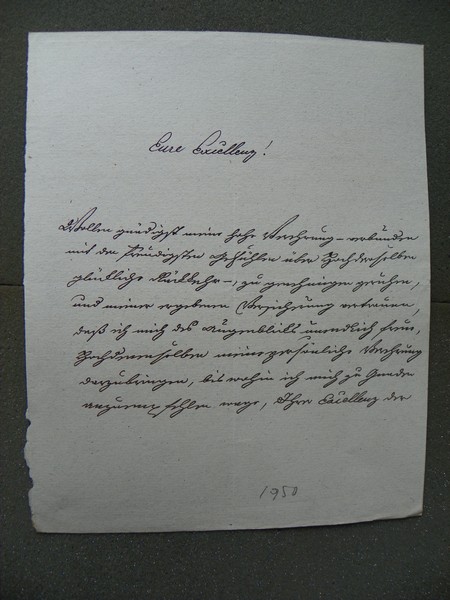 Eure Excellenz!
Wollen gnädigst meine hohe Verehrung – verbunden
mit den freudigsten Gefühlen über Hochderselben
glückliche Rückkehr –, zu genehmigen geruhen,
und meiner ergebenen Versicherung vertrauen,
daß ich mich des Augenbliks unendlich freue,
Hochdenenselben meine persönliche Verehrung
darzubringen, bis wohin ich mich zu Gnaden
anzuempfehlen wage, Ihro Excellenz der
1950